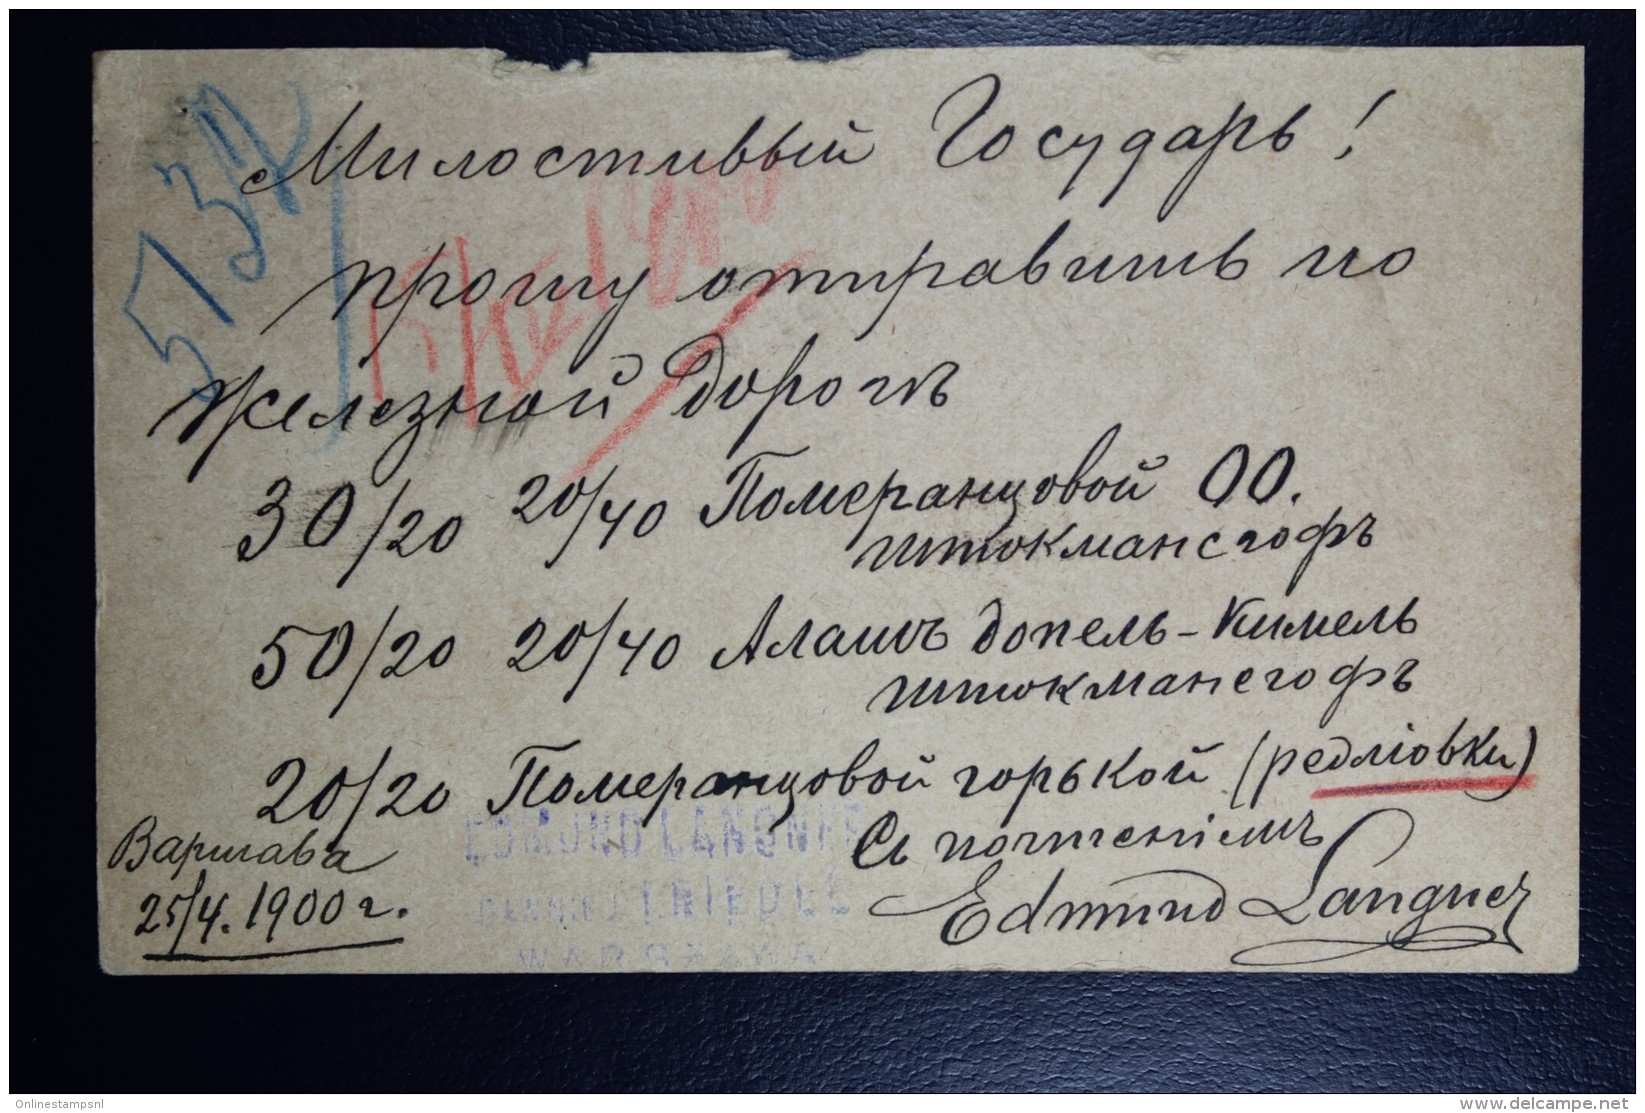 5132
Милостивый Государь!
прошу отправить по
железной дорогѣ
30/20 20/40 Померанцовой 00.
Штокмансгофъ
50/20 20/40 Алашъ допель-кимель
Штокмансгофъ
20/20 Померанцовой горькой (редліовки)
EDMUND LANGNER
Съ почтеніемъ
Варшава
25/4. 1900 г.
Edmund Langner
WARSZAWA
Onlinestampsnl
www.delcampe.net